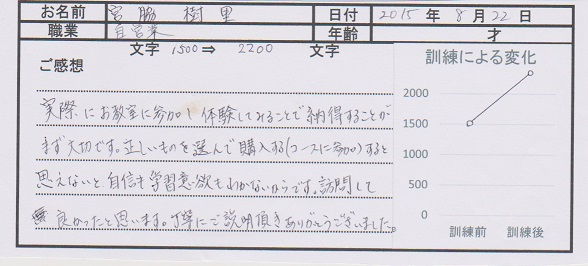 お名前 宮脇 樹里 日付 2015 年 8 月 22 日
職業 自営業 年齢 才
文字 1500 ⇒ 2200 文字
ご感想
実際にお教室に参加し体験してみることで納得することが
まず大切です。正しいものを選んで購入する(コースに参加)すると
思えないと自信も学習意欲もわかないからです。訪問して
良かったと思います。丁寧にご説明頂きありがとうございました。
訓練による変化
2000
1500
1000
500
0
訓練前 訓練後